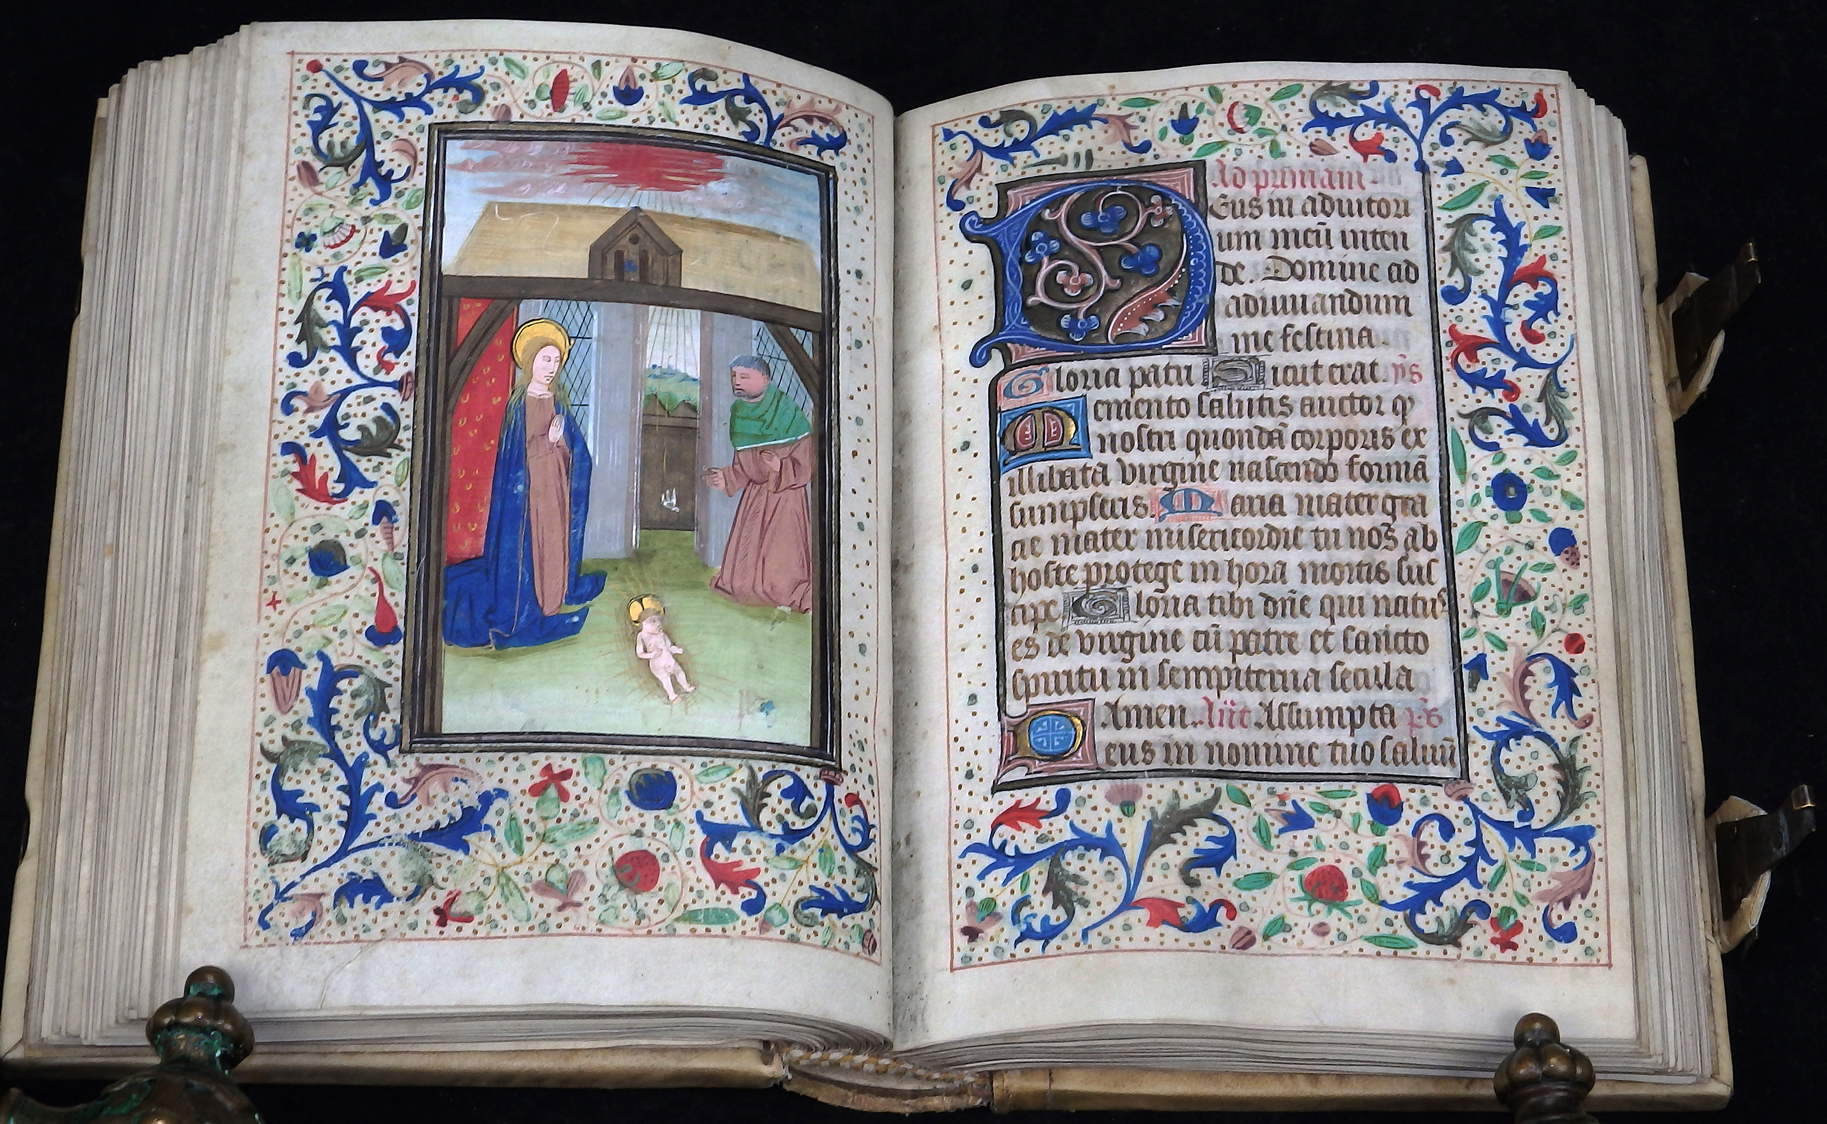 Ad primam
Deus in adiutori
um meū inten
de. Domine ad
adiuuandum
me festina.
Gloria patri Sicut erat. ẏs
Memento salutis auctor qͥ
nostri quondā corporis ex
illibata virgine nascendo formā
sumpseris Maria mater gra
cie mater misericordie tu nos̄ ab
hoste protege in hora mortis sus
cipe Gloria tibi dn̄e qui natus
es de virgine cū patre et sancto
spiritu in sempiterna secula
Amen. An̄t Assumpta p̄s
Deus in nomine tuo saluū